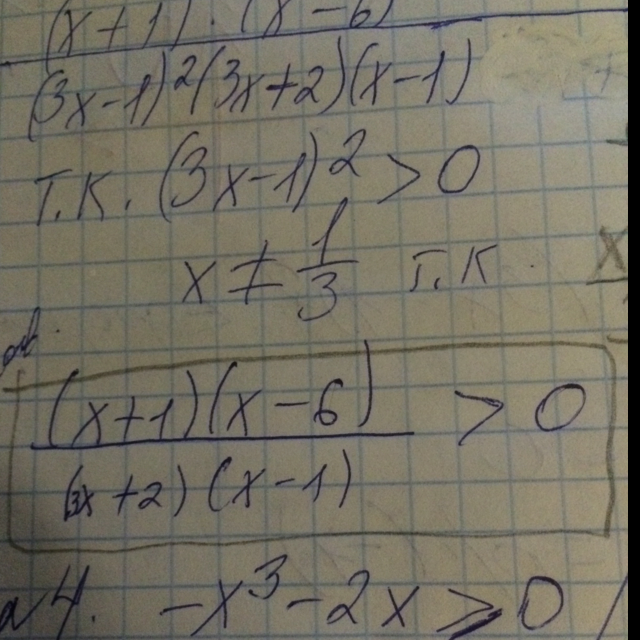 (x+1)·(x-6)
(3x-1)²(3x+2)(x-1)
Т.К. (3x-1)² > 0
x ≠ 1/3 Т.К.
(x+1)(x-6) / (3x+2)(x-1) > 0
№4. -x³-2x ≥ 0